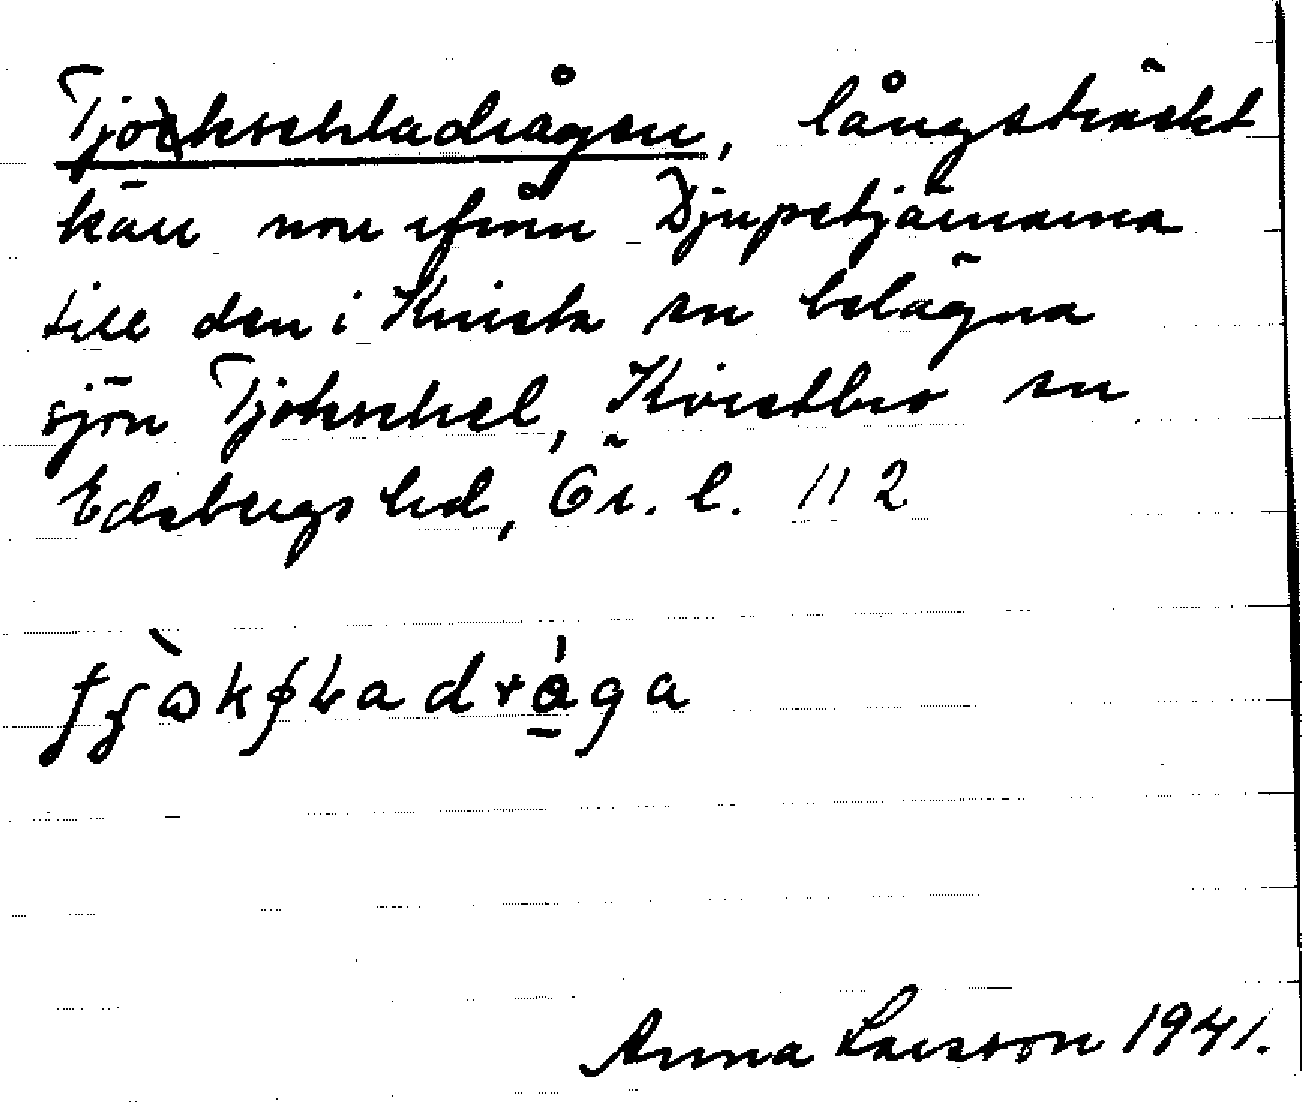 Tjokschladrågen, långsträckt
kärr norr ifrån Djupetjärnarna
till den i Knista sn belägna
sjön Tjokschel, Kvistbro sn
Edsbergs hd, Ör. l. 112
Anna Larsson 1941.